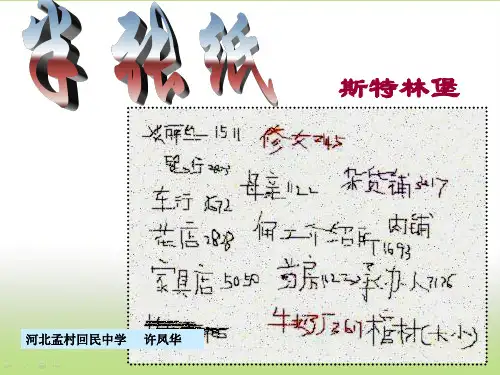 半张纸
斯特林堡
丽丝 1511 修女
银行
母亲 1122 杂货铺 3217
车行
肉铺
花店 2828 佣工介绍所 1693
家具店 5050 药房 承办人 7126
牛奶厂 2617 棺材(大小)
河北孟村回民中学 许凤华